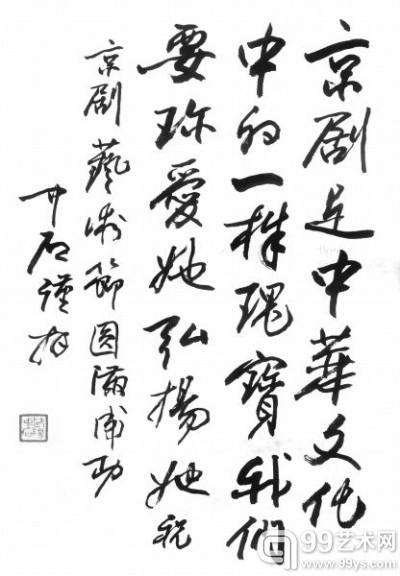 京剧是中華文化
中的一株瑰寶我們
要珍愛她弘揚她祝
京剧藝術節圆滿成功
中石謹
99艺术网
www.99ys.com